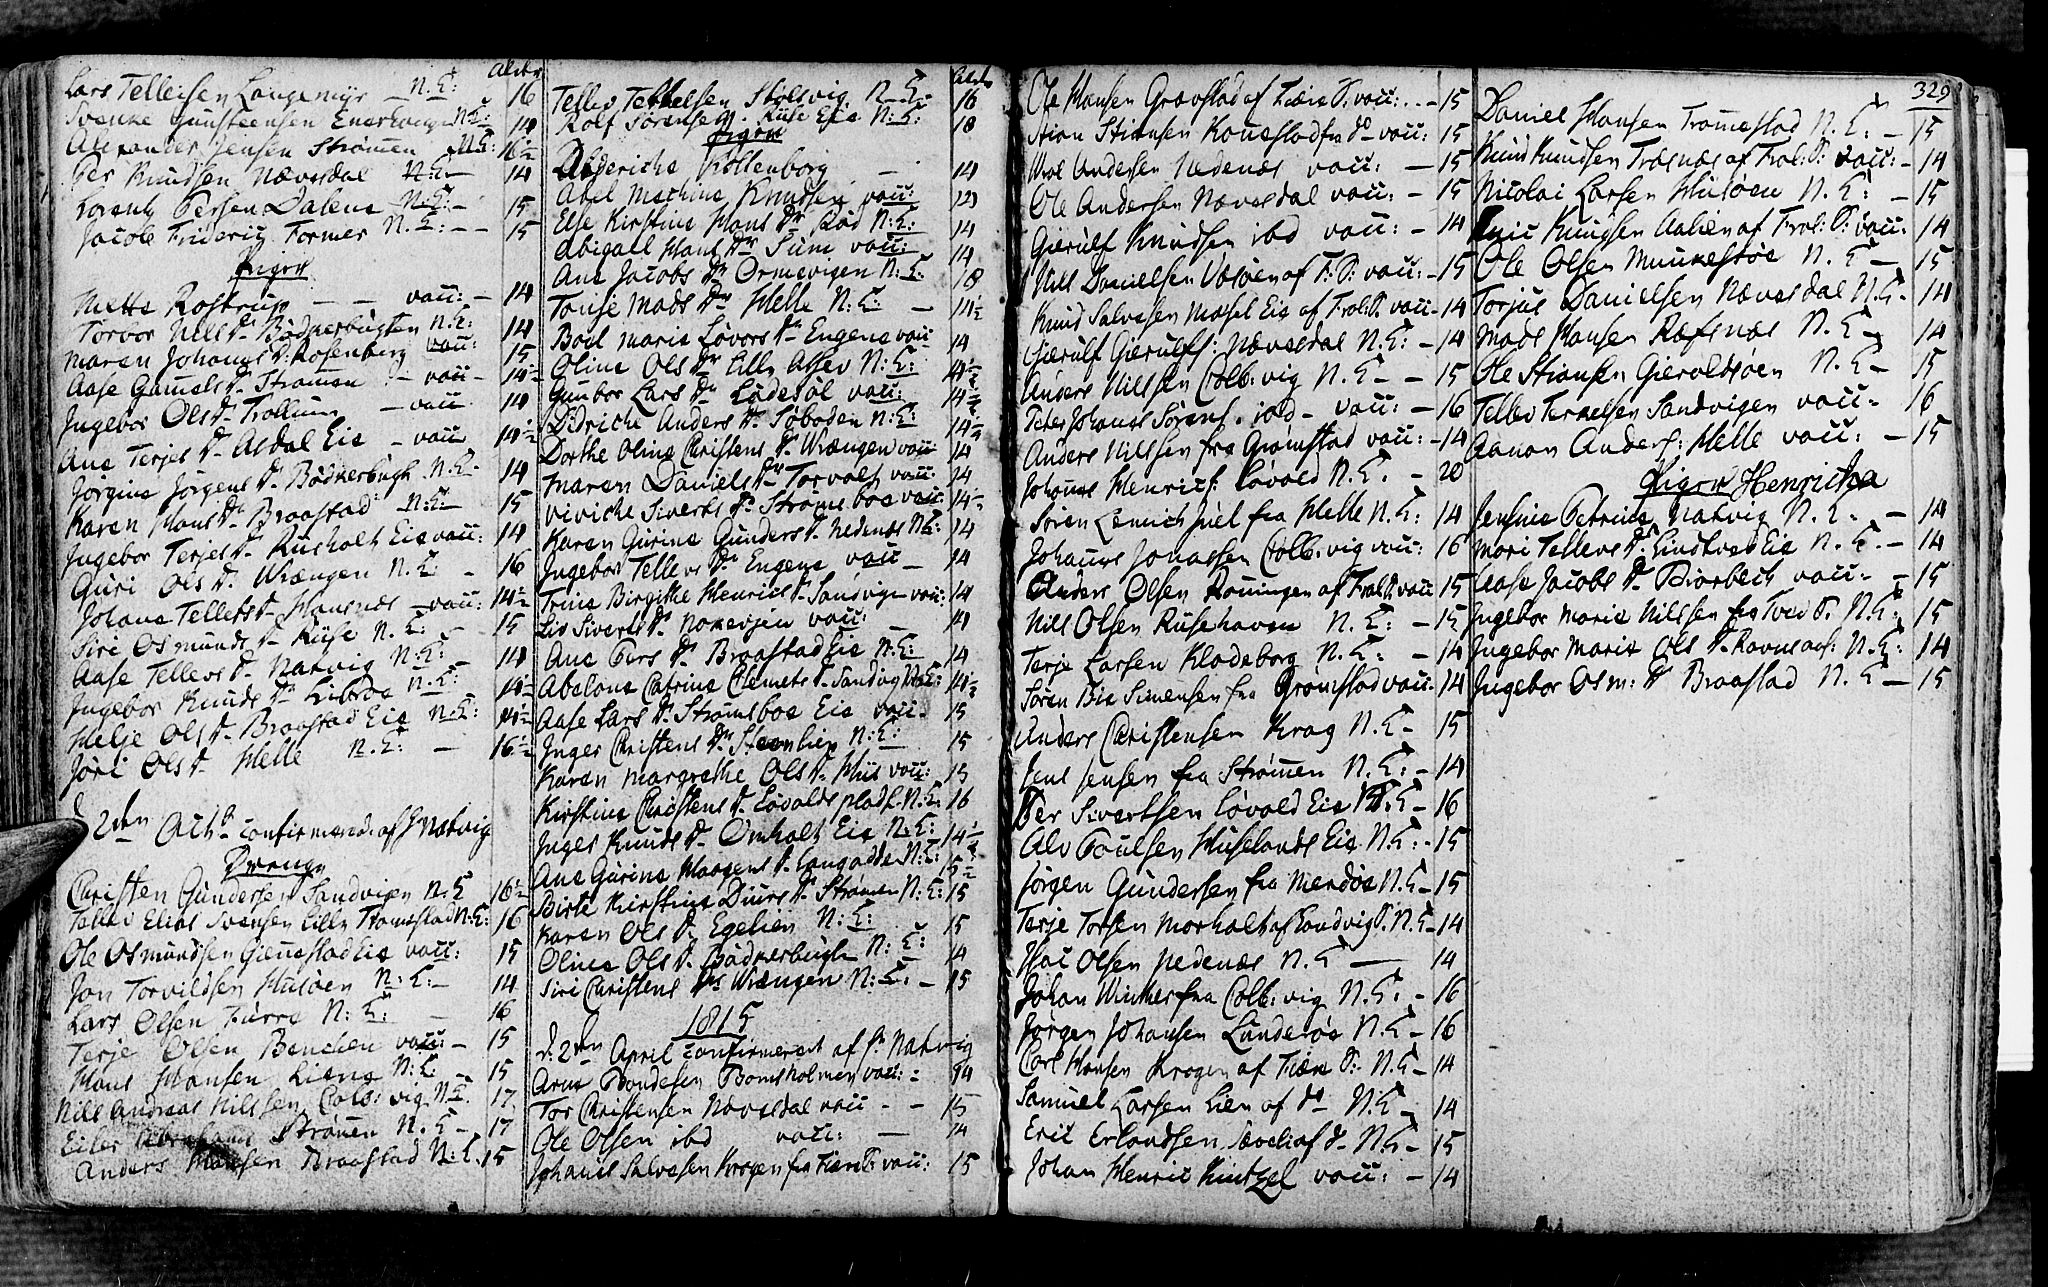 Alder
Lars Tellefsen Langemÿr - N.E: 16
Svenke Gunsteensen N.E: 14
Alexander Jensen Strømen N.E: 16½
Per Knudsen Nævesdal N.E. 14
Lorentz Persen Dalene N:E: 15
Jacob Frideric Former N.E: - - 15
Piger
Mette Rostrup - - vau: - 14
Torbor Nills Dr Bødkerbugten N.E: 14
Maren Johanns D: Rosenberg vau: 15
Aase Gamels D. Strømen - vau - 14½
Ingebor Ols Dr Trollum - vau 14
Ane Terjes D. Asdal Eie - vau 14½
Jørgine Jørgens D. Bødkerbugt N.E. 14
Karen Hans Dr Braastad N.E: 15
Ingebor Terjes D. Rusholt Eie vau: 14
Guri Ols D. Wrængen N.E: - 16
Johane Tellefs D. Hansnæs - vau: 14½
Siri Osmunds D. Ruse N.E: - 15
Aase Tellevs D. Natvig N:E: - 14
Ingebor Knuds Dr Libroe N.E: 14½
Helje Ols D. Braastad Eie N.E: 14½
Jøri Ols D. Helle N.E: - 16½
d 2den Octbr confirmerede af H Natvig
Drenge
Christen Gundersen Sandvigen N.E 16½
Tellev Elias Svensen Lille Tromestad N.E: 16
Ole Osmundsen Gieuestad Eie vau: 15
Jon Torvildsen Husøen N:E:- 14
Lars Olsen Fierre N:E: - 16
Terje Olsen Benchen vau: - 15
Hans Hansen Liene N:E: - 15
Nils Andreas Nilssen Colb: vig N.E. 17
Eiler Abrahams Strømen N.E - 17
Anders Hansen Braastad N:E. 15
Alder
Tellev Terkelsen Stølsvig N.E.- 16
Rolf Sørensen Ruse Eie N:E: 18
Piger
Alderiche Kollenborg - 14
Abel Mathine Knudsen vau:
Else Kirstine Hans Dr Rød N:E: 14
Abigael Hans Dr Sum vau: 14
Ane Jacobs Dr Ormevigen N:E: 18
Tonje Mads Dr Helle N:E: - 14½
Bodl Marie Lovors Dr Engene vau 14
Oline Ols Dr Lille N:E: 14½
Gunbor Lars Dr Lødesøl vau: 14½
Didriche Anders Dr Søboden N:E: 14½
Dorthe Oline Christens D. Wrængen vau 14
Maren Daniels D. Torvolt vau: 14
Viviche Siverts Dr Strømsboe vau: 14½
Karen Gurine Gunders D. Nedenes N:E: 14
Ingebor Tellevs Dr Engene vau - 14
Trine Birgithe Henrics D. Sandvigen vau: 14
Liv Siverts D. vau: - 14
Ane Pers Dr Braastad Eie N:E: 14
Abelone Catrine Clemets D. Sandvig N:E: 14½
Aase Lars D. Strømsboe Eie vau. 15
Inger Christens Dr Steenlien N:E: 15
Karen Margrethe Ols D. Hÿis vau: 15
Kirstine Christens D. Løvolds pladf. N:E. 16
Inger Knuds D. Omholt Eie N:E: 14½
Ane Gurine Mortens D. Langodde N:E: 15½
Birte Kirstine Diurs D. Strømen N.E: 15
Karen Ols D. Egelien N:E: 15
Oline Ols D. Bødkerbugten N:E: 14
Siri Christens Dr Wrængen N:E: - 15
1815
d. 2den April confirmeret af Hr Natvig
Arne Bondesen Bomsholmen vau: - 14
Tor Christensen Nævesdal vau - - 15
Ole Olsen ibd vau: - 14
Johanes Salvesen Krogen fra Fiære P: vau: 15
Ole Hansen Gravstad af Fiære P: vau: . . - 15
Aion Stiansen Kouestad fra do vau: 15
Niel Andersen Nedenæs vau: - 15
Ole Andersen Nævesdal vau: - 15
Gierulf Knudsen ibd vau: - 14
Nils Danielsen Vasøen af F: P: vau: - 15
Knud Salvesen Mosel Eie af Frol: P. vau - 14
Gierulf Gierulfs: Nævesdal N.E: - 14
Anders Nilssen Colb: vig N.E - - 15
Peter Johanes Sørens. ibd - vau: - 16
Anders Nilssen fra Grømstad vau: - 14
Johanes Henrics: Løvold N.E. - 20
Søren Lemich Juel fra Helle N.E: 14
Johanes Jonassen Colb: vig vau: 16
Anders Olsen Rouningen af Frol: P: vau 15
Nils Olsen Rusehaven N.E: - 15
Terje Larsen Klodeborg N.E: - 14
Søren Bie Simensen fra Grømstad vau: 14
Anders Christensen Krag N.E - 15
Jens Jensen fra Strømen N.E: - 14
Per Sivertsen Løvold Eie N.E - 16
Alv Poulsen Huselands Eie N.E: - 15
Jørgen Gundersen fra Merdøe N.E - 15
Terje Torsen Morholt af Landvig P. N.E - 14
Hou Olsen Nedenæs N.E - 14
Johan Winther fra Colb: vig N.E: - 16
Jørgen Johansen Lunderøe N.E - 16
Carl Hansen Krogen af Fiære P: N.E - 14
Samuel Larsen Lien af do N.E - 14
Eric Erlandsen Sæveli af do N.E - 15
Johan Henric Kintzel vau: - 14
329
Daniel Hansen Tromestad N.E: - 15
Knud Knudsen Træsnæs af Frol: P: vau: - 14
Nicolai Larsen Husøen N.E: - 15
Knudsen Aalien af Frol: P: vau: 14
Ole Olsen Munkestøe N.E - 15
Torjus Danielsen Nævesdal N.E - 14
Mads Hansen Ræfsnæs N.E - 14
Ole Stiansen Gieroldsøen N.E - 15
Tellev Terkelsen Sandvigen vau - 16
Aanon Anders: Helle vau: - 15
Piger Henricha
Jensine Petrine Natvig N.E. - 14
Mari Tellevs Dr Lindtvet Eie N.E. - 14
Aase Jacobs D. Biorbech vau - - 15
Ingebor Marie Nilssen fra Tved P. N.E: 15
Ingebor Marie Ols D. Ravnaas: N.E: 14
Ingebor Osm: D. Braastad N.E - 15